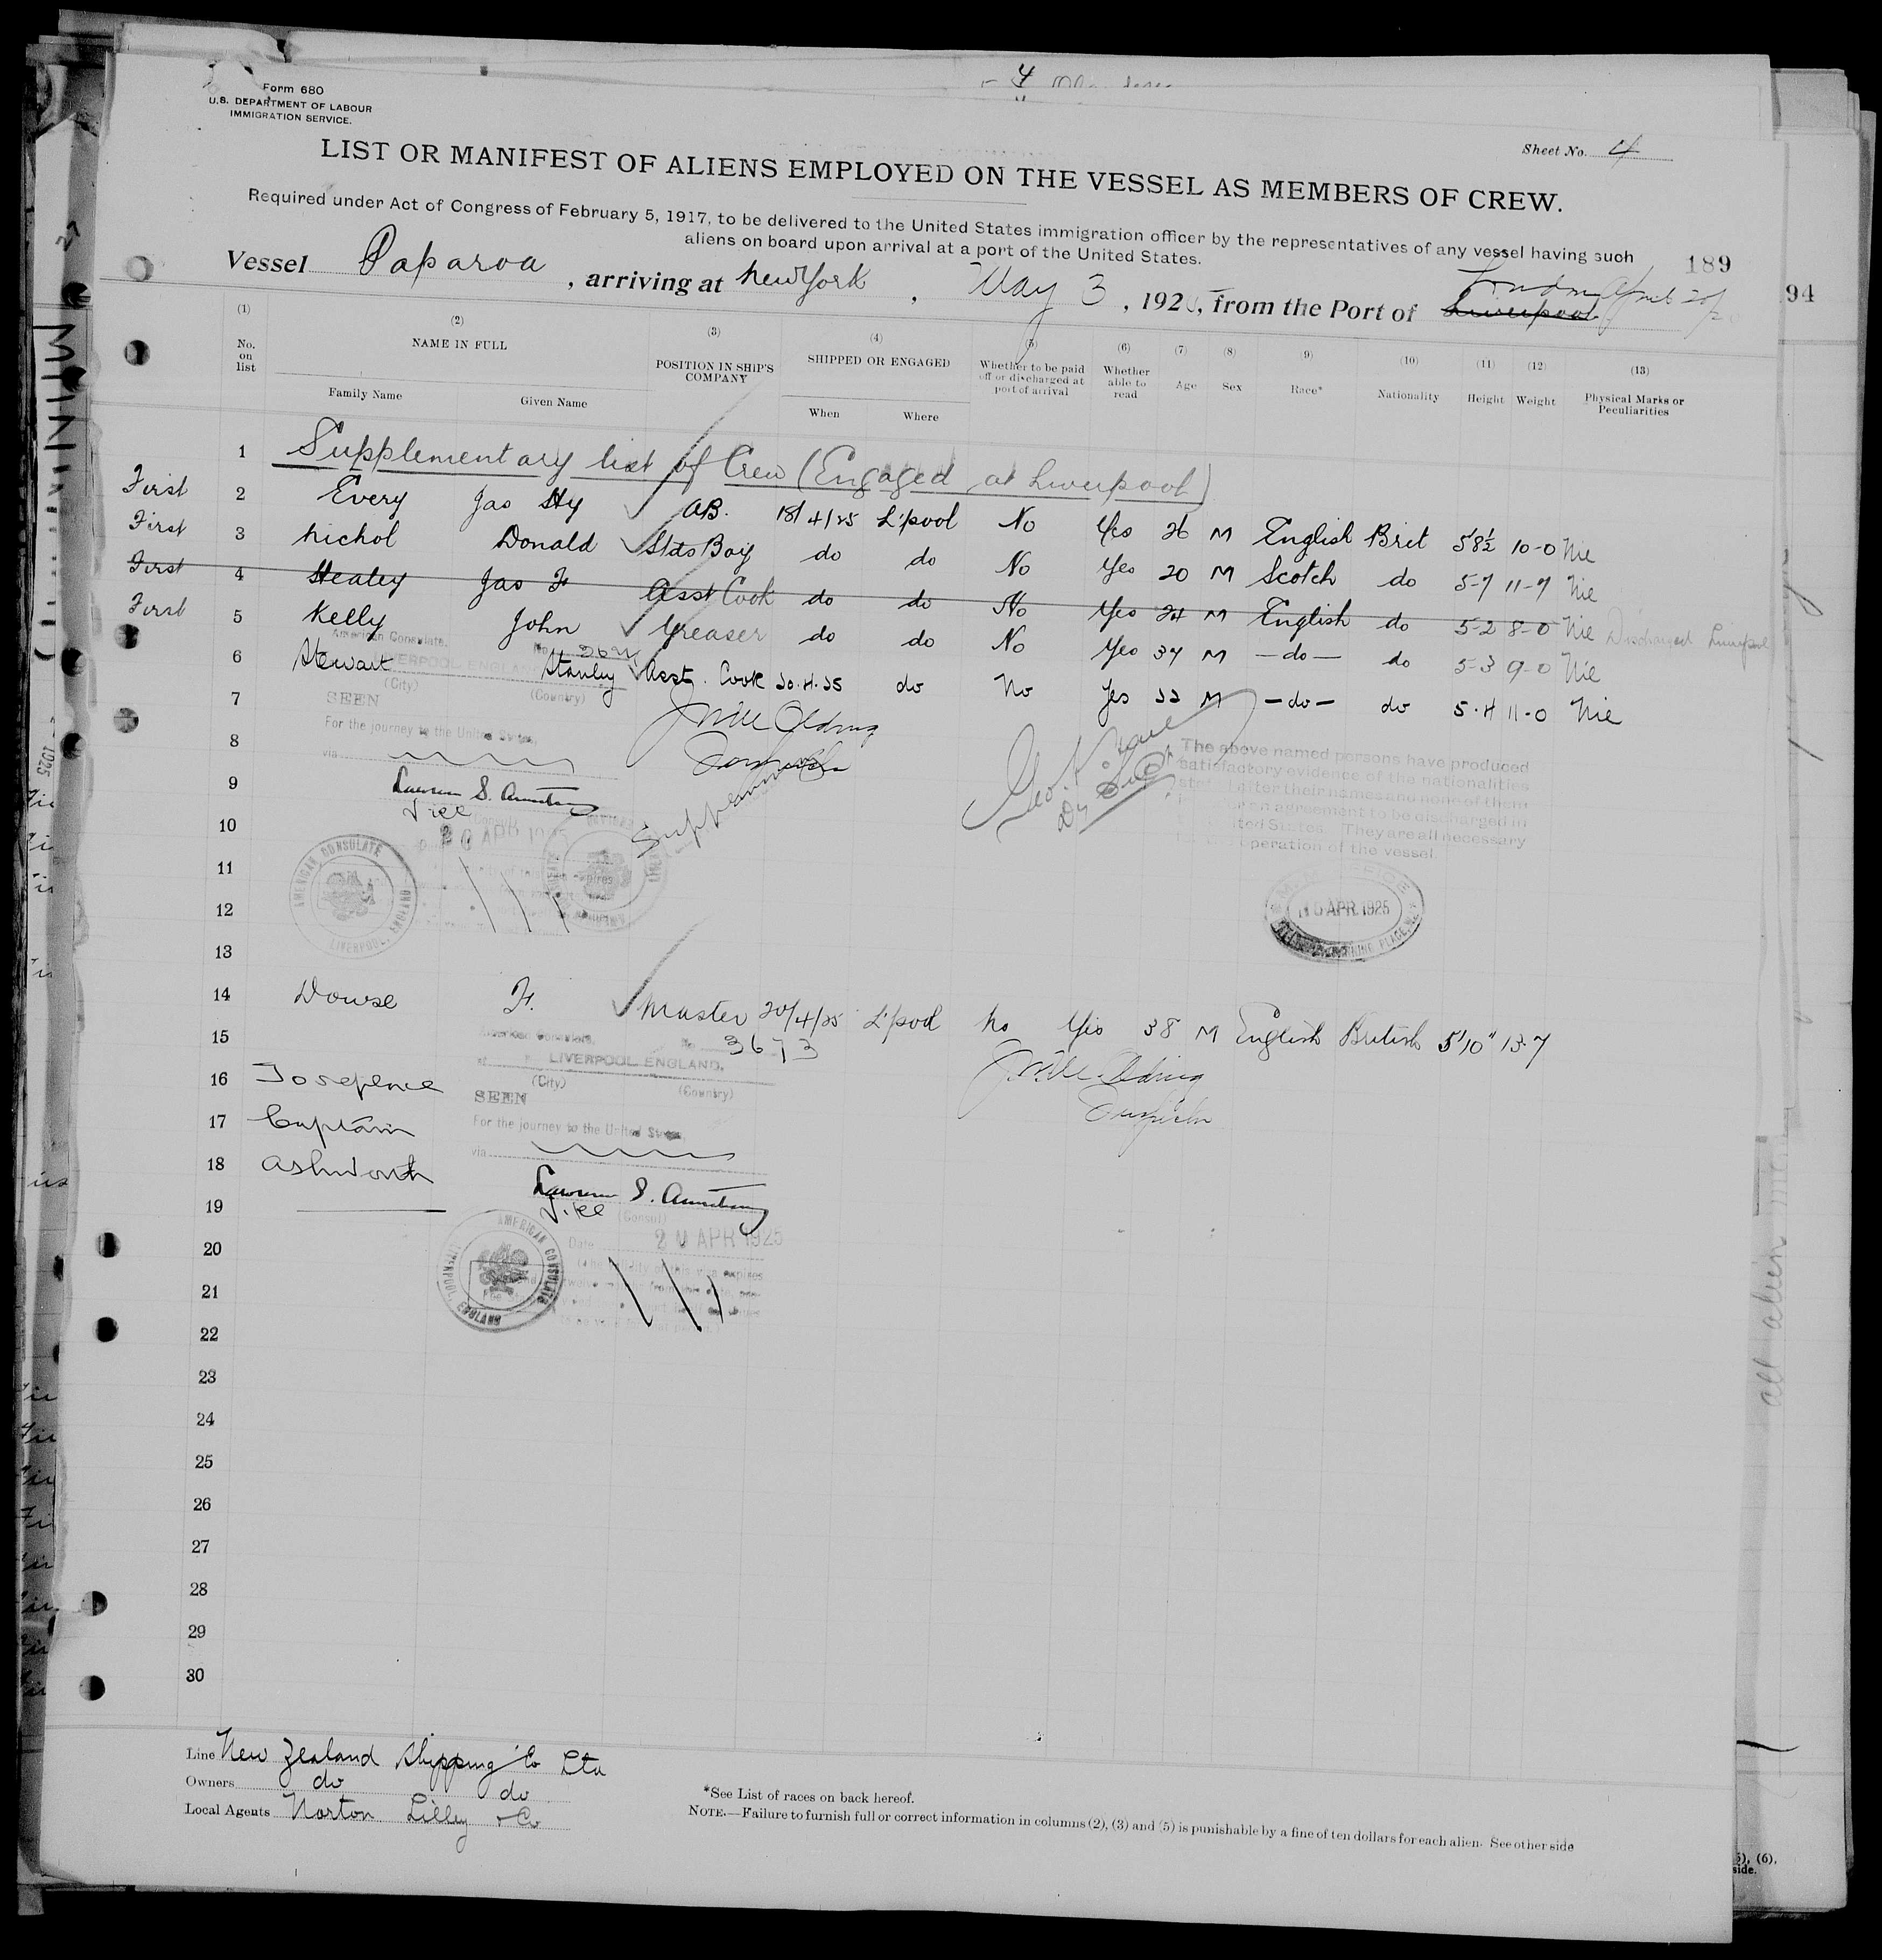 Form 680
U.S. DEPARTMENT OF LABOUR
IMMIGRATION SERVICE.
Sheet No. 4
LIST OR MANIFEST OF ALIENS EMPLOYED ON THE VESSEL AS MEMBERS OF CREW.
Required under Act of Congress of February 5, 1917, to be delivered to the United States immigration officer by the representatives of any vessel having such
aliens on board upon arrival at a port of the United States.
189
94
Vessel Paparoa, arriving at New York, May 3, 1925, from the Port of Liverpool London April 20/
(1) (2) (3) (4) (5) (6) (7) (8) (9) (10) (11) (12) (13)
No. on list NAME IN FULL POSITION IN SHIP'S COMPANY SHIPPED OR ENGAGED Whether to be paid off or discharged at port of arrival Whether able to read Age Sex Race* Nationality Height Weight Physical Marks or Peculiarities
Family Name Given Name When Where
1 Supplementary list of Crew (Engaged at Liverpool)
First 2 Every Jas Hy AB. 18/4/25 L'pool No Yes 26 M English Brit 5 8½ 10-0 Nil
First 3 Nichol Donald Stds Boy do do No Yes 20 M Scotch do 5-7 11-7 Nil
First 4 Healey Jas F Asst Cook do do No Yes 24 M English do 5-2 8-0 Nil Discharged Liverpool
First 5 Kelly John Greaser do do No Yes 37 M -do- do 5-3 9-0 Nil
6 Stewart Stanley Asst. Cook 20.4.25 do No Yes 22 M -do- do 5.4 11-0 Nil
American Consulate.
No.
LIVERPOOL ENGLAND
(City) (Country)
7
SEEN
For the journey to the United States,
8
via
9
Vice
(Consul)
10
20 APR 1925
The above named persons have produced
satisfactory evidence of the nationalities
stated after their names and none of them
agreement to be discharged in
United States. They are all necessary
operation of the vessel.
11
AMERICAN CONSULATE
LIVERPOOL, ENGLAND
12
APR 1925
13
14 Dowse F. Master 20/4/25 L'pool No Yes 38 M English British 5'10" 13-7
15
American Consulate.
No. 3673
at LIVERPOOL ENGLAND.
(City) (Country)
16
SEEN
17 Captain
For the journey to the United States,
via
18 Ashworth
19
Vice (Consul)
Date 20 APR 1925
AMERICAN CONSULATE
LIVERPOOL, ENGLAND
20
21
22
23
24
25
26
27
28
29
30
Line New Zealand Shipping Co Ltd
Owners do do
Local Agents Norton Lilly & Co
*See List of races on back hereof.
NOTE.—Failure to furnish full or correct information in columns (2), (3) and (5) is punishable by a fine of ten dollars for each alien. See other side
5), (6).
side.